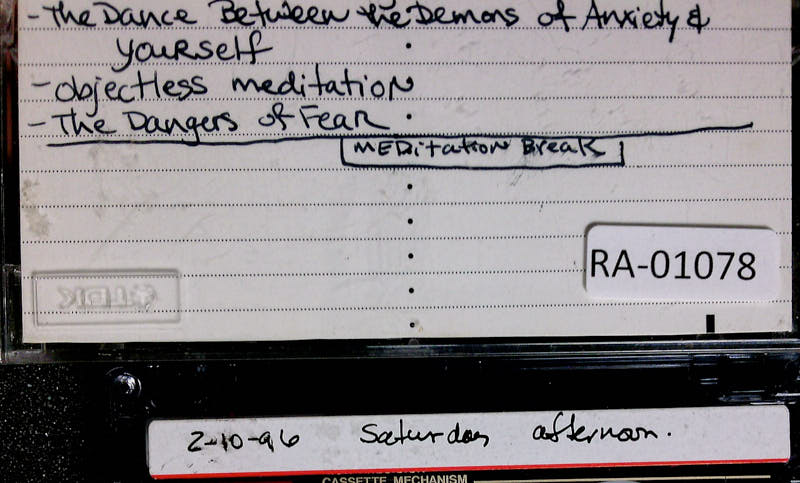 - The Dance Between the Demons of Anxiety &
yourself
- objectless meditation
- The Dangers of Fear
MEDitation Break
RA-01078
TDK
2-10-96 Saturday afternoon.
CASSETTE MECHANISM